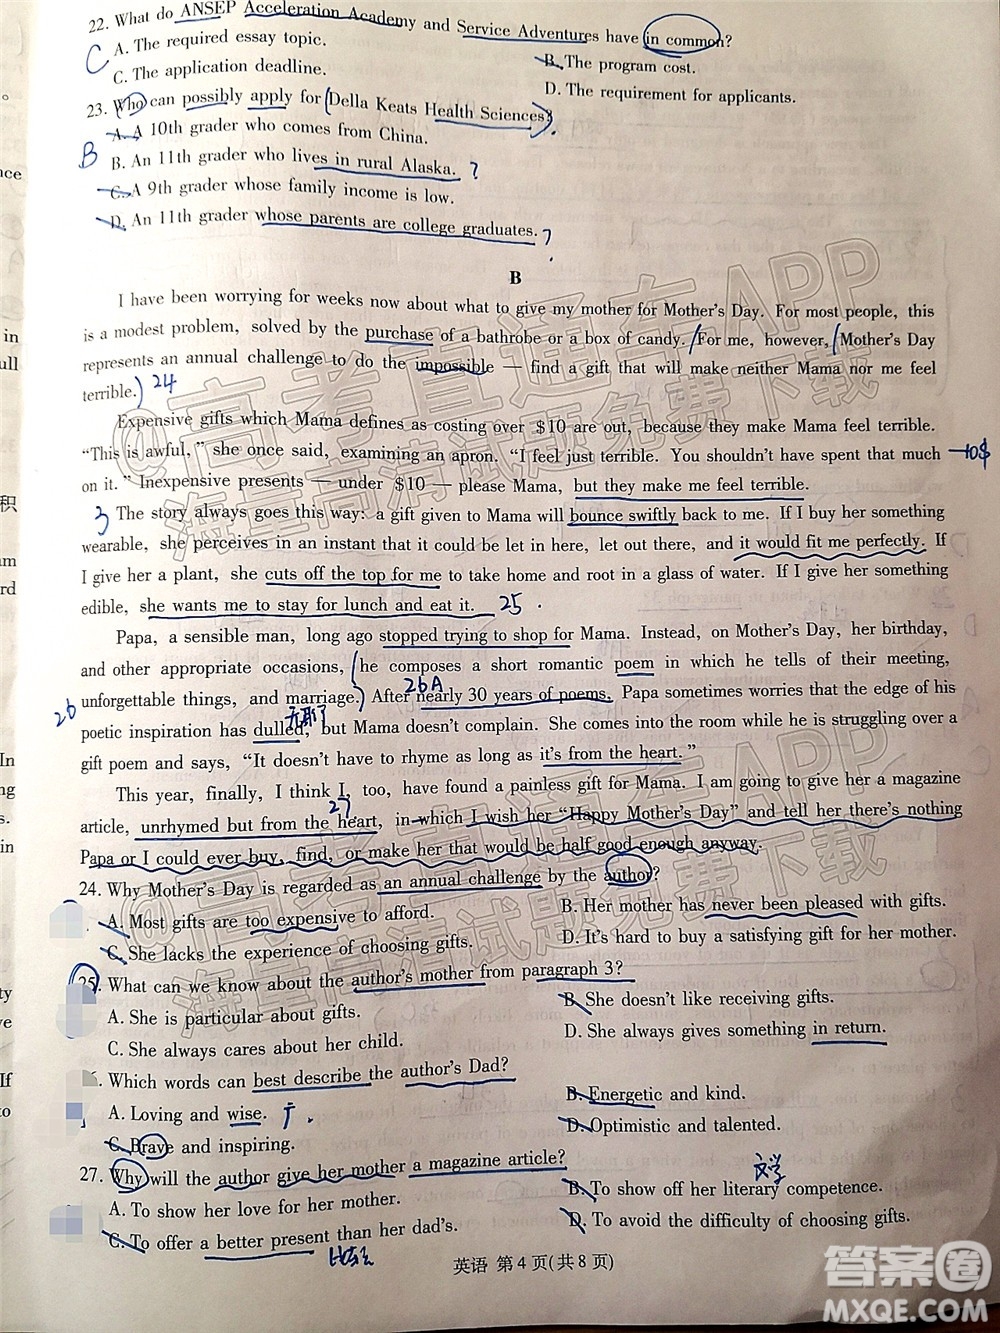 22. What do ANSEP Acceleration Academy and Service Adventures have in common?
C
A. The required essay topic.
B. The program cost.
C. The application deadline.
D. The requirement for applicants.
23. Who can possibly apply for Della Keats Health Sciences?
A. A 10th grader who comes from China.
B
B. An 11th grader who lives in rural Alaska. ?
C. A 9th grader whose family income is low.
D. An 11th grader whose parents are college graduates. ?
B
I have been worrying for weeks now about what to give my mother for Mother's Day. For most people, this
is a modest problem, solved by the purchase of a bathrobe or a box of candy. For me, however, Mother's Day
represents an annual challenge to do the impossible — find a gift that will make neither Mama nor me feel
terrible. 24
Expensive gifts which Mama defines as costing over $10 are out, because they make Mama feel terrible.
"This is awful," she once said, examining an apron. "I feel just terrible. You shouldn't have spent that much 10$
on it." Inexpensive presents — under $10 — please Mama, but they make me feel terrible.
3 The story always goes this way: a gift given to Mama will bounce swiftly back to me. If I buy her something
wearable, she perceives in an instant that it could be let in here, let out there, and it would fit me perfectly. If
I give her a plant, she cuts off the top for me to take home and root in a glass of water. If I give her something
edible, she wants me to stay for lunch and eat it. 25
Papa, a sensible man, long ago stopped trying to shop for Mama. Instead, on Mother's Day, her birthday,
and other appropriate occasions, he composes a short romantic poem in which he tells of their meeting,
26A
26 unforgettable things, and marriage. After nearly 30 years of poems, Papa sometimes worries that the edge of his
poetic inspiration has dulled, but Mama doesn't complain. She comes into the room while he is struggling over a
gift poem and says, "It doesn't have to rhyme as long as it's from the heart."
This year, finally, I think I, too, have found a painless gift for Mama. I am going to give her a magazine
27
article, unrhymed but from the heart, in which I wish her "Happy Mother's Day" and tell her there's nothing
Papa or I could ever buy, find, or make her that would be half good enough anyway.
24. Why Mother's Day is regarded as an annual challenge by the author?
A. Most gifts are too expensive to afford.
B. Her mother has never been pleased with gifts.
C. She lacks the experience of choosing gifts.
D. It's hard to buy a satisfying gift for her mother.
25. What can we know about the author's mother from paragraph 3?
A. She is particular about gifts.
B. She doesn't like receiving gifts.
C. She always cares about her child.
D. She always gives something in return.
Which words can best describe the author's Dad?
A. Loving and wise.
B. Energetic and kind.
C. Brave and inspiring.
D. Optimistic and talented.
27. Why will the author give her mother a magazine article?
文学
A. To show her love for her mother.
B. To show off her literary competence.
C. To offer a better present than her dad's.
D. To avoid the difficulty of choosing gifts.
英语 第 4 页(共 8 页)
@高考直通车APP
海量高清试题免费下载
@高考直通车APP
海量高清试题免费下载
答案圈
MXQE.COM
nce
in
ull
积
m
rd
In
ng
s.
in
ty
ve
If
to